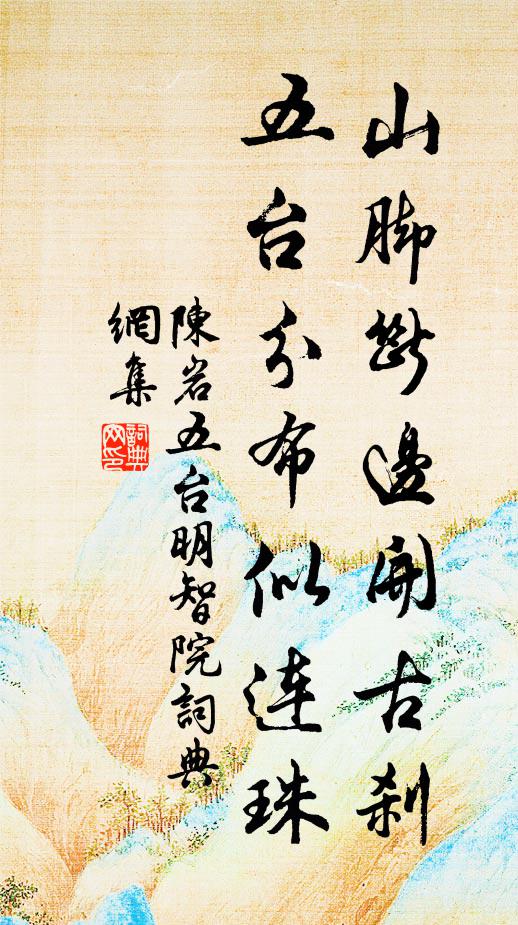 山脚斷邊開古刹
五台分布似连珠
陳岩五台明智院詞典
網集
詞典網印